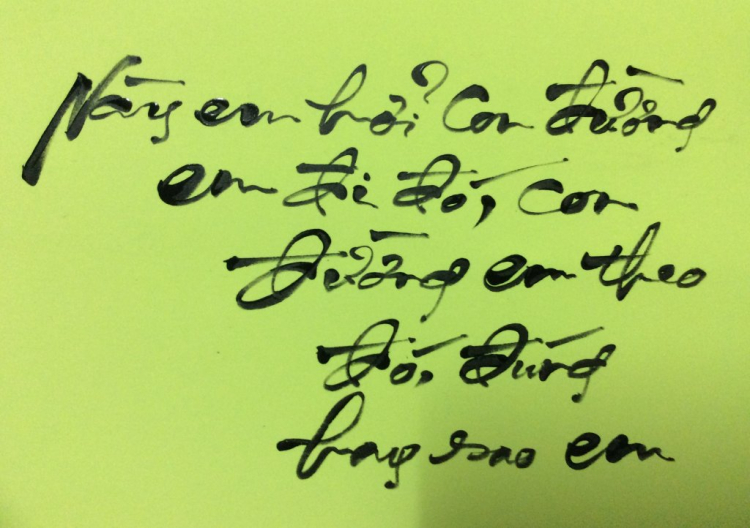 Này em hỡi? Con đường
em đi đó, con
đường em theo
đó, đúng
hay sao em